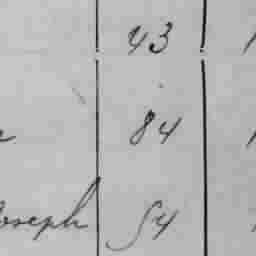 43
84
Joseph 54